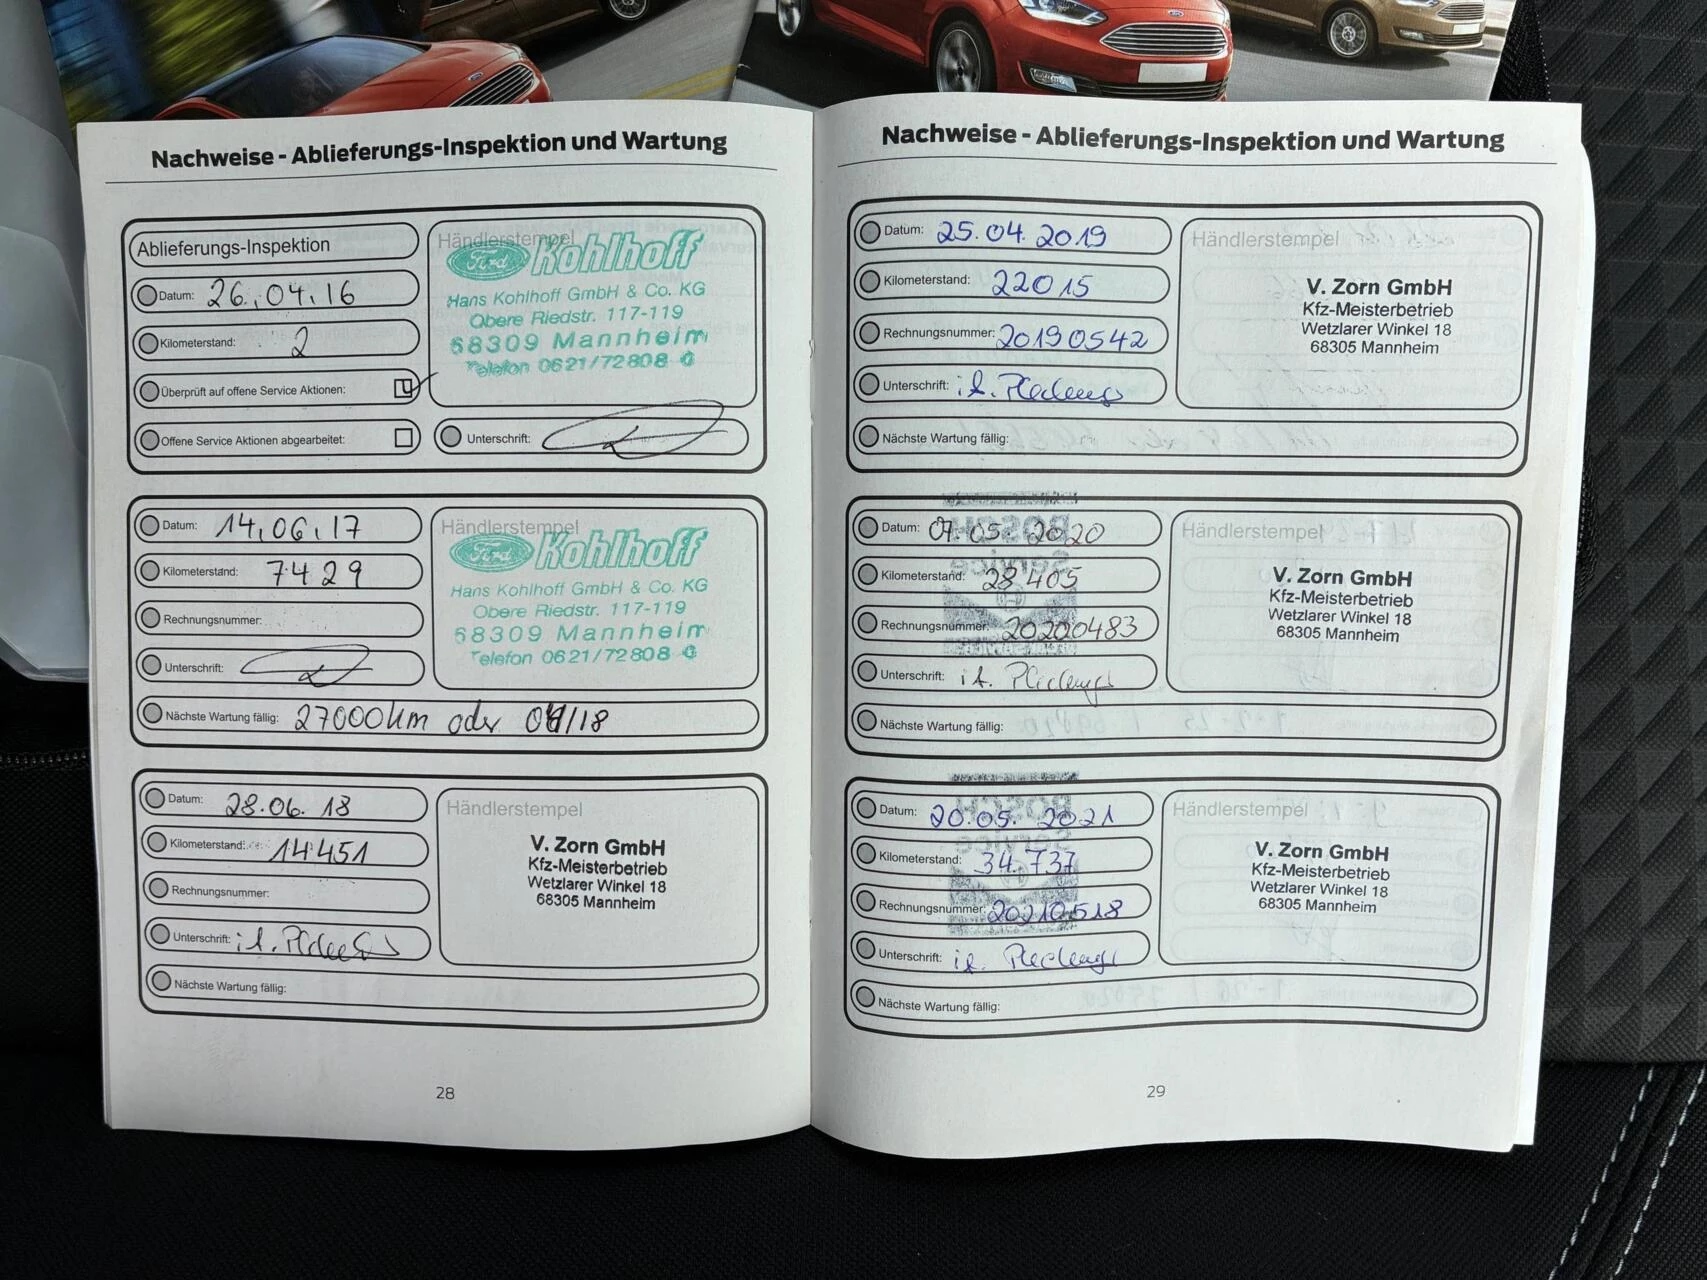 Nachweise - Ablieferungs-Inspektion und Wartung
Ablieferungs-Inspektion
Datum: 26.04.16
Kilometerstand: 2
Überprüft auf offene Service Aktionen:
Offene Service Aktionen abgearbeitet:
Händlerstempel
Ford Kohlhoff
Hans Kohlhoff GmbH & Co. KG
Obere Riedstr. 117-119
68309 Mannheim
Telefon 0621/72808
Unterschrift:
Datum: 14.06.17
Kilometerstand: 7429
Rechnungsnummer:
Unterschrift:
Händlerstempel
Ford Kohlhoff
Hans Kohlhoff GmbH & Co. KG
Obere Riedstr. 117-119
68309 Mannheim
Telefon 0621/72808
Nächste Wartung fällig: 27000km oder /18
Datum: 28.06.18
Kilometerstand: 14451
Rechnungsnummer:
Unterschrift:
Händlerstempel
V. Zorn GmbH
Kfz-Meisterbetrieb
Wetzlarer Winkel 18
68305 Mannheim
Nächste Wartung fällig:
28
Nachweise - Ablieferungs-Inspektion und Wartung
Datum: 25.04.2019
Kilometerstand: 22015
Rechnungsnummer: 20190542
Unterschrift:
Händlerstempel
V. Zorn GmbH
Kfz-Meisterbetrieb
Wetzlarer Winkel 18
68305 Mannheim
Nächste Wartung fällig:
Datum: 07.05.2020
Kilometerstand: 28.405
Rechnungsnummer: 20200483
Unterschrift:
Händlerstempel
V. Zorn GmbH
Kfz-Meisterbetrieb
Wetzlarer Winkel 18
68305 Mannheim
Nächste Wartung fällig:
Datum: 20.05.2021
Kilometerstand: 34.737
Rechnungsnummer: 20210518
Unterschrift:
Händlerstempel
V. Zorn GmbH
Kfz-Meisterbetrieb
Wetzlarer Winkel 18
68305 Mannheim
Nächste Wartung fällig:
29